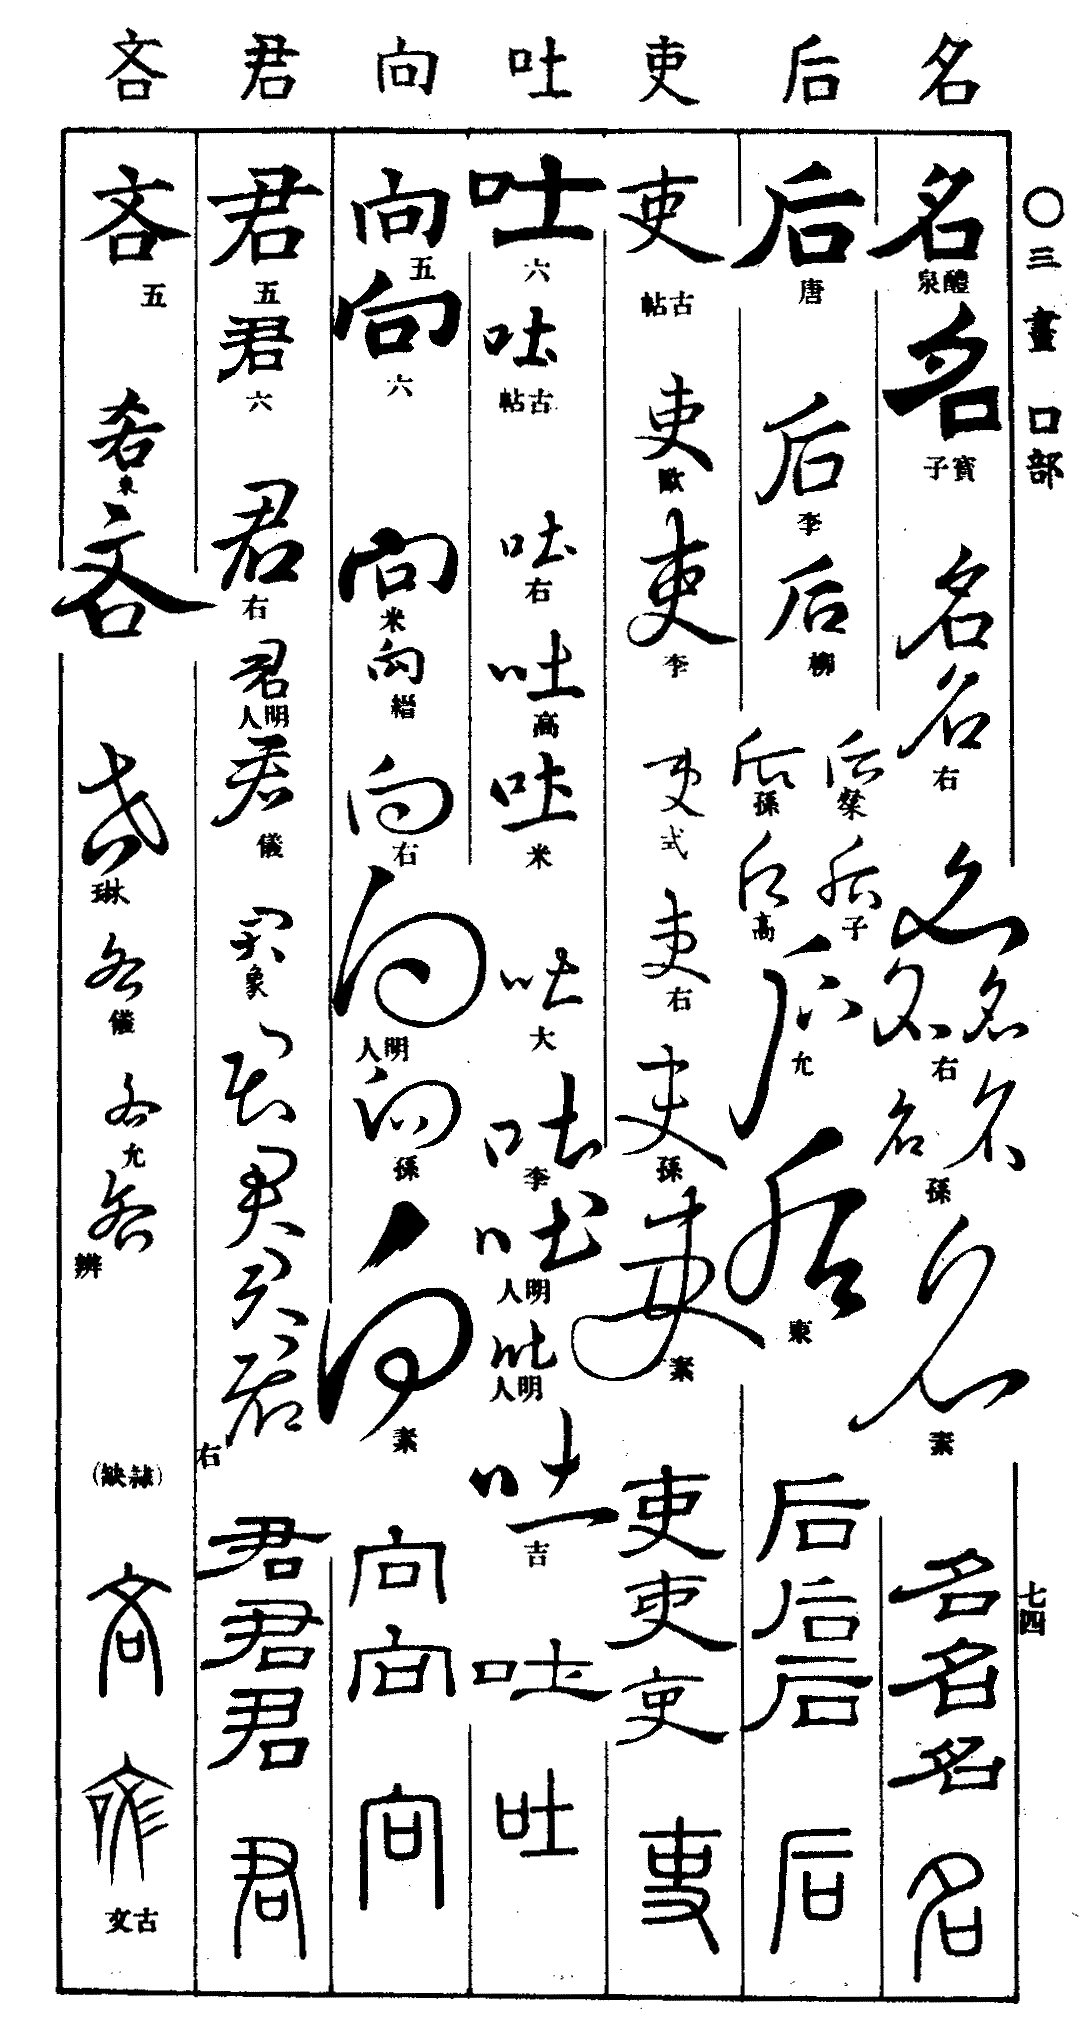 ○三畫 口部 七四
名 后 吏 吐 向 君 吝
名 醴泉 名 寶子 名 名 右 名 名 名 右 名 名 孫 名 素 名 名 名 名
后 唐 后 李 后 柳 后 粲 后 孫 后 子 后 高 后 允 后 東 后 后 后 后
吏 古帖 吏 歐 吏 李 吏 式 吏 右 吏 孫 吏 素 吏 吏 吏 吏
吐 六 吐 古帖 吐 右 吐 高 吐 米 吐 大 吐 李 吐 明人 吐 明人 吐 吉 吐 吐
向 五 向 六 向 米 向 縉 向 右 向 明人 向 孫 向 素 向 向 向
君 五 君 六 君 右 君 明人 君 儀 君 象 君 君 君 君 右 君 君 君 君
吝 五 吝 東 吝 吝 琳 吝 儀 吝 允 吝 辨 (隷缺) 吝 吝 古文